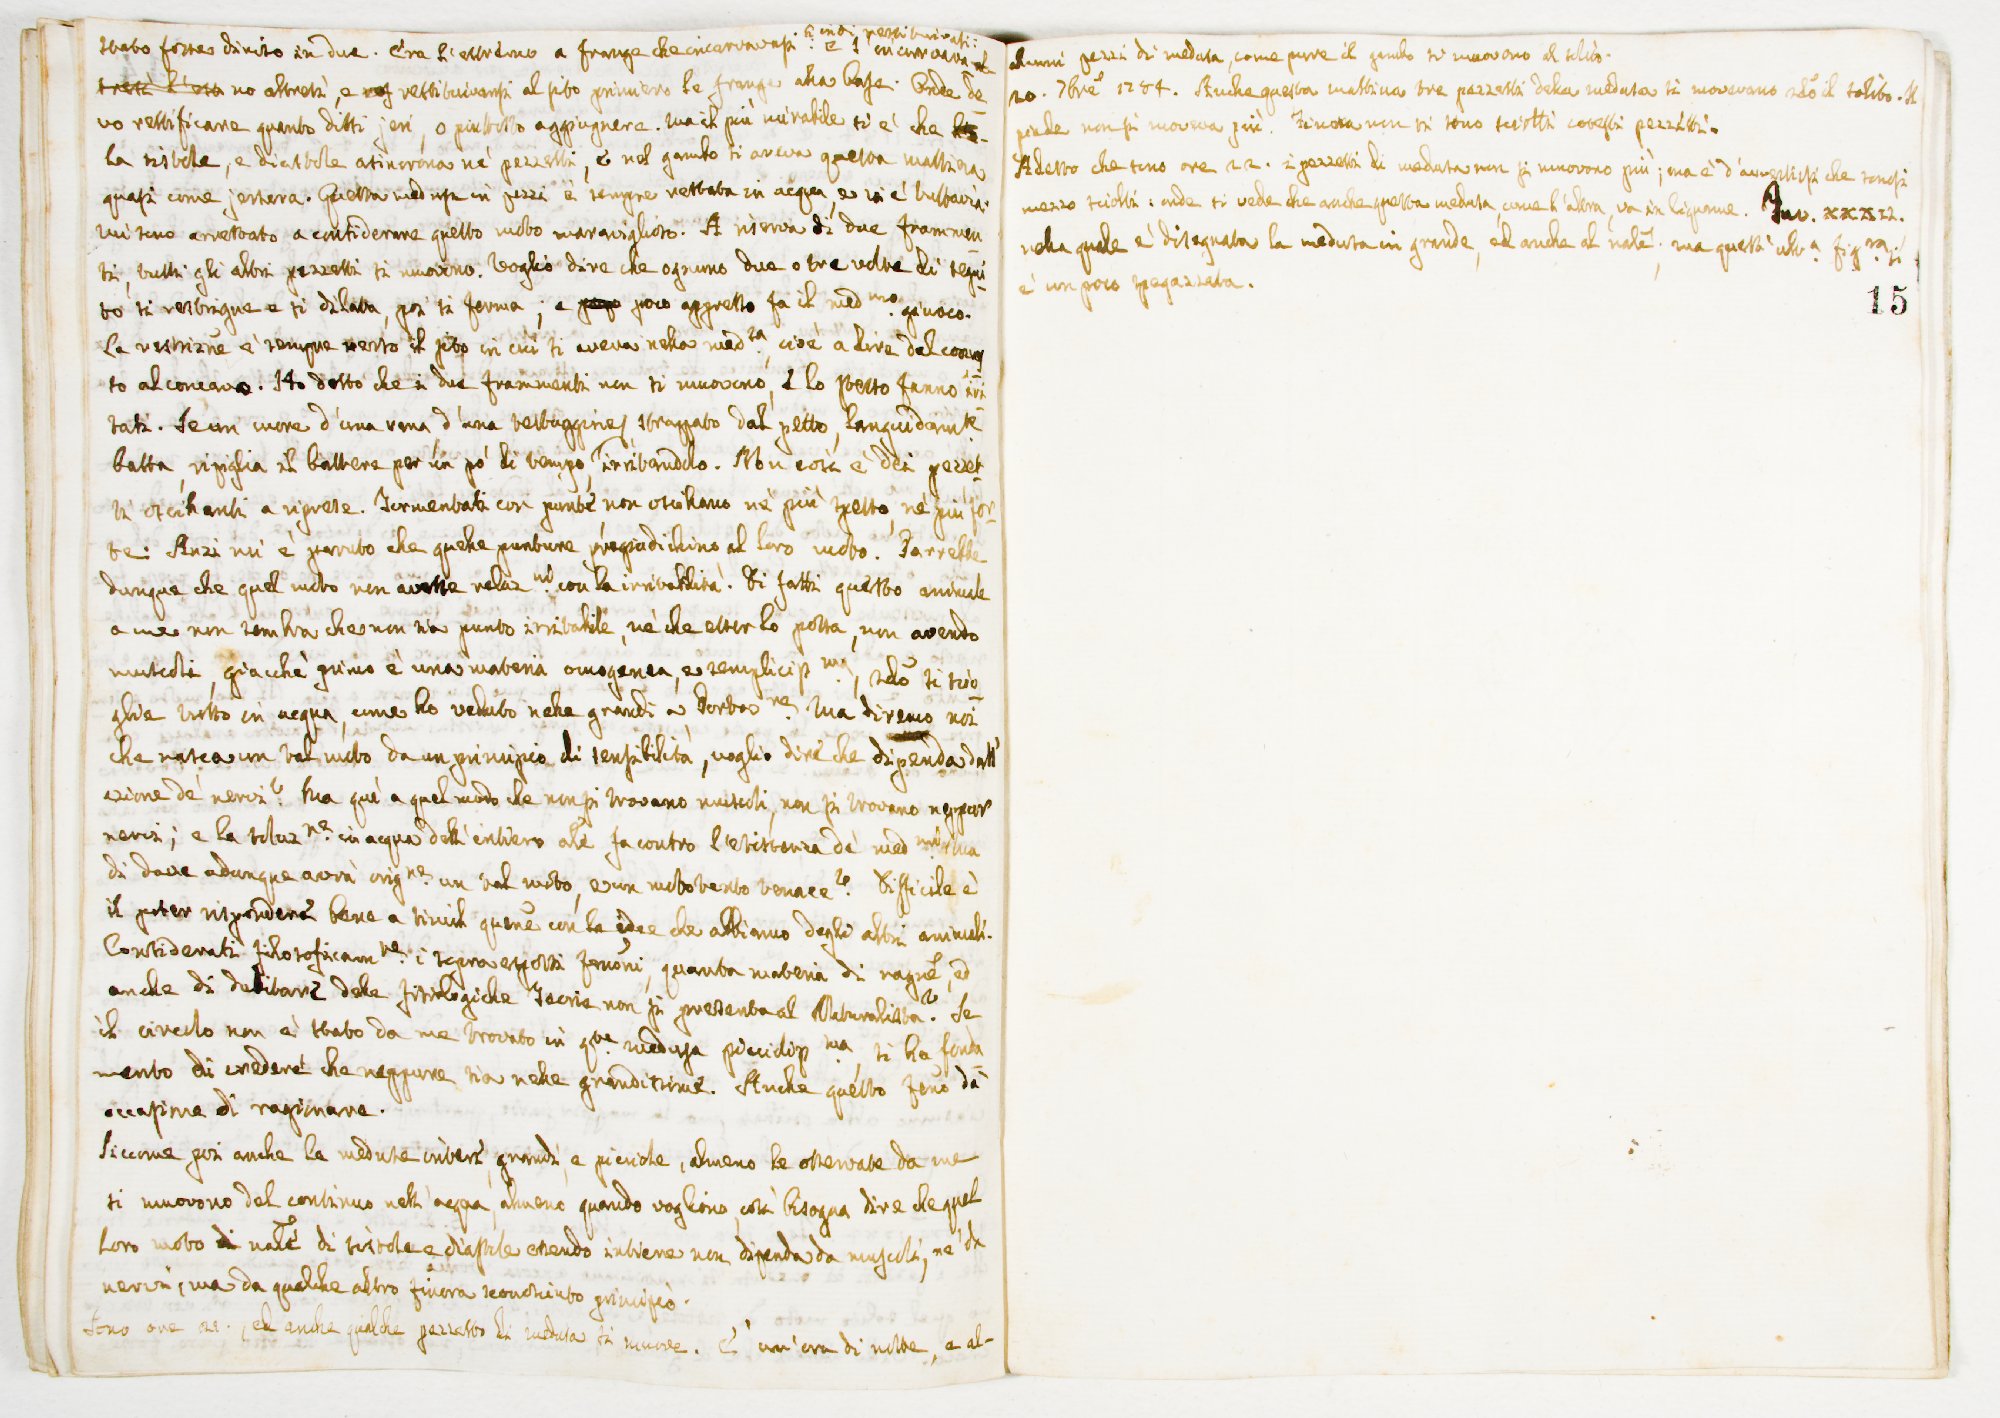 stato fosse diviso in due. Era l'estremo a frange che incurvavasi. e indi restituivasi:
e s'incurvava al-
no altresì, e restituivansi al sito primiero le frange alla base. Onde de
vo rettificare quanto dissi jeri, o piuttosto aggiugnere. Ma il più mirabile si è che
la sistole, e diastole asincrona ne' pezzetti, e nel gambo si aveva questa mattina
quasi come jersera. Questa medusa in pezzi è sempre restata in acqua, e vi è tuttavia.
Mi sono arrestato a considerare questo moto maraviglioso. A riserva di due frammen
ti, tutti gli altri pezzetti si muovono. Voglio dire che ognuno due o tre volte di segui
to si restrigne e si dilata, poi si ferma; e poco appresso fa il med.mo giuoco.
La restrizne è sempre verso il sito in cui si aveva nella med.sa, cioè a dire dal convesso
to al concavo. Ho detto che i due frammenti non si muovono, e lo stesso fanno irri
tati. Se un cuore d'una rana d'una testuggine strappato dal petto, languidamte
batta, ripiglia il battere per un pò di tempo, irritandolo. Non così è dei pezzet
ti oscillanti a riprese. Tormentati con punte non oscillano nè più spesso, nè più for
te: Anzi mi è parruto che quelle punture pregiudichino al loro moto. Parrebbe
dunque che quel moto non avesse relaz.ne con la irritabilità. Di fatti questo animale
a me non sembra che non sia punto irritabile, nè che esser lo possa, non avendo
muscoli, giacchè primo è una materia omogenea, e semplicis.ma, 2do si scio
glie tutto in acqua, come ho veduto nelle grandi a Portov.re Ma diremo noi
che nasca un tal moto da un principio di sensibilità, voglio dire che dipenda dall'
azione de' nervi? Ma quì a quel modo che non si trovano muscoli, non si trovano neppur
nervi; e la soluz.ne in acqua dell'intiero ale fa contro l'esistenza de' med.mi Ma
di dove adunque avrà orig.ne un tal moto, e un moto tanto tenace? Difficile è
il poter rispondere bene a simil quesne con la idee che abbiamo degli altri animali.
Considerati filosoficam.te i sopra esposti fenoni, quanta materia di ragne, ed
anche di debitare delle fisiologiche Teorie non si presenta al Naturalista? Se
il circolo non è stato da me trovato in q.ta medusa picciolis.ma, si ha fonda
mento di credere che neppure sia nelle grandissime. Anche questo feno dà
occasione di ragionare.
Siccome poi anche le meduse intere, grandi, e picciole, almeno le osservate da me
si muovono del continuo nell'acqua, almeno quando vogliono, così bisogna dire che quel
loro moto nale di sistole e diastole essendo intiere non dipenda da muscoli, nè da
nervi, ma da qualche altro finora sconosciuto principio.
Sono ore 21., ed anche qualche pezzetto di medusa si muove. È un'ora di notte, e al-
alcuni pezzi di medusa, come pure il gambo si muovono al solito.
20. 7bre 1784. Anche questa mattina tre pezzetti della medusa si movevano 2do il solito. Il
piede non si moveva più. Finora non si sono sciolti cotesti pezzetti.
Adesso che sono ore 22. i pezzetti di medusa non si muovono più; ma è d'avvertirsi che sonosi
mezzo sciolti: onde si vede che anche questa medusa, come l'altra, va in liquame. Tav. XXXII.
nella quale è disegnata la medusa in grande, ed anche al nale; ma quest'ult.a fig.ra si
è un poco spegazzata.
15